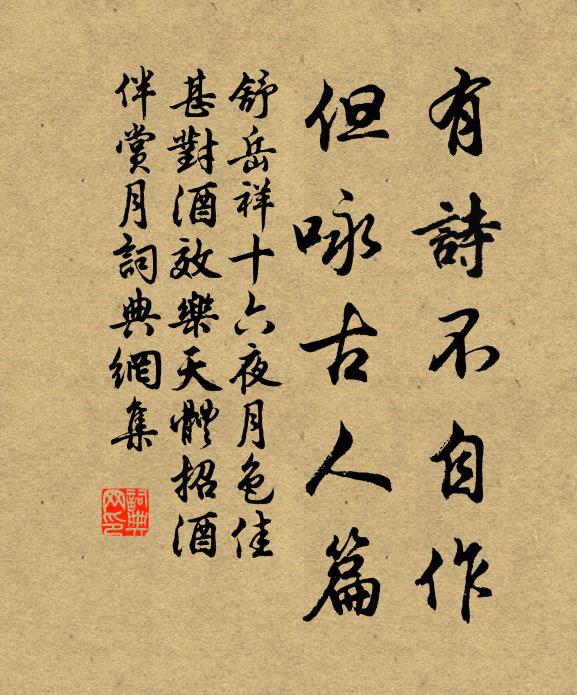 有詩不自作
但咏古人篇
舒岳祥十六夜月色佳
甚對酒效樂天體招酒
伴賞月詞典網集
詞典网印